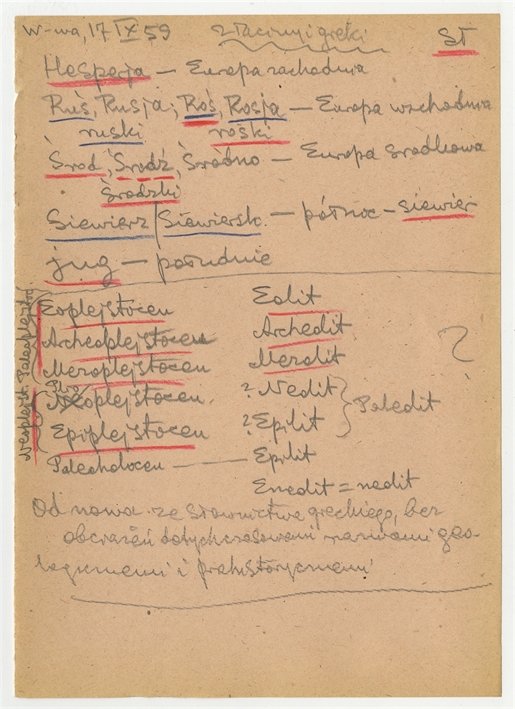 W-wa, 17 IX 59
z łaciny i greki
SŁ
Hesperja — Europa zachodnia
Ruś, Rusja; Roś, Rosja — Europa wschodnia
ruski roski
Środ, Środź, Śródno — Europa środkowa
środzki
Siewierz/Siewiersk — północ — siewier
jug — południe
Eoplejstocen Eolit
Archeoplejstocen Archeolit
Meroplejstocen Merolit
Plio
Neoplejstocen. ? Neolit
Paleolit
Epiplejstocen ? Epilit
Paleoholocen — Epilit
Eneolit = neolit
?
Od nowa ze słownictwa greckiego, bez
obciążeń dotychczasowymi nazwami geo-
logicznemi i prahistorycznemi